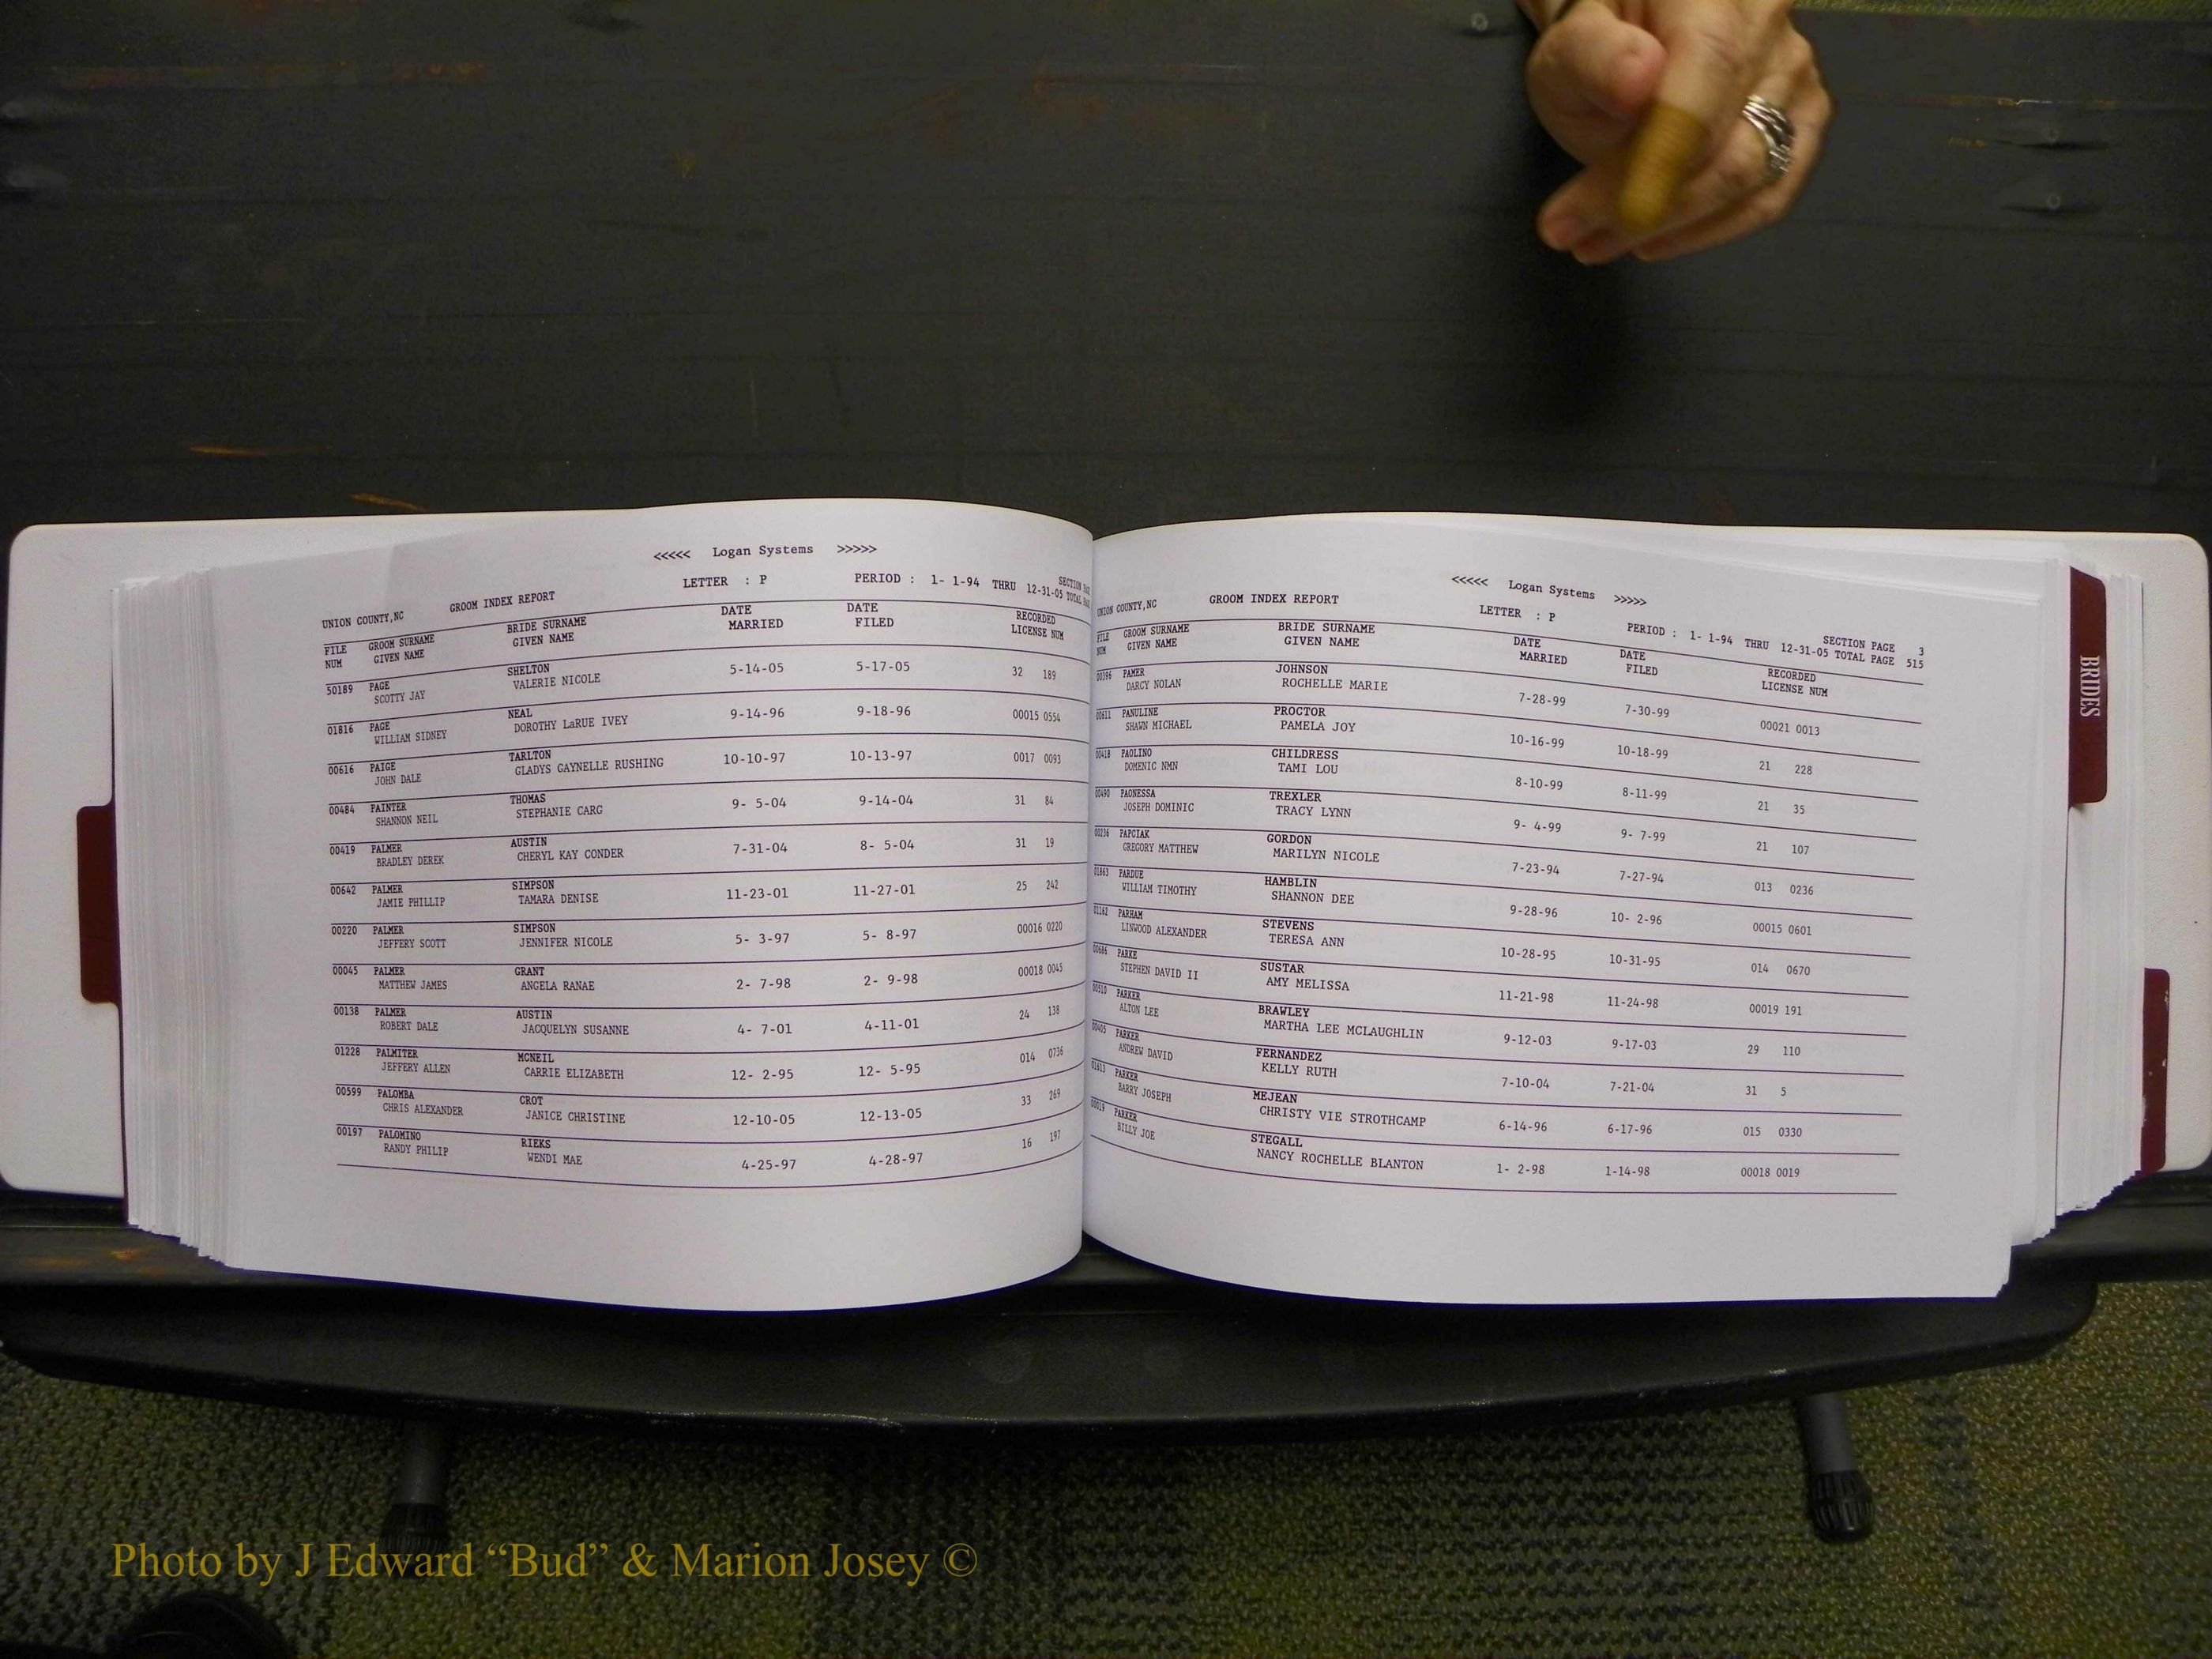 <<<<< Logan Systems >>>>>
UNION COUNTY,NC GROOM INDEX REPORT LETTER : P PERIOD : 1- 1-94 THRU 12-31-05 TOTAL
SECTION
FILE GROOM SURNAME BRIDE SURNAME DATE DATE RECORDED
NUM GIVEN NAME GIVEN NAME MARRIED FILED LICENSE NUM
50189 PAGE SHELTON 5-14-05 5-17-05 32 189
SCOTTY JAY VALERIE NICOLE
01816 PAGE NEAL 9-14-96 9-18-96 00015 0554
WILLIAM SIDNEY DOROTHY LaRUE IVEY
00616 PAIGE TARLTON 10-10-97 10-13-97 0017 0093
JOHN DALE GLADYS GAYNELLE RUSHING
00484 PAINTER THOMAS 9- 5-04 9-14-04 31 84
SHANNON NEIL STEPHANIE CARG
00419 PALMER AUSTIN 7-31-04 8- 5-04 31 19
BRADLEY DEREK CHERYL KAY CONDER
00642 PALMER SIMPSON 11-23-01 11-27-01 25 242
JAMIE PHILLIP TAMARA DENISE
00220 PALMER SIMPSON 5- 3-97 5- 8-97 00016 0220
JEFFERY SCOTT JENNIFER NICOLE
00045 PALMER GRANT 2- 7-98 2- 9-98 00018 0045
MATTHEW JAMES ANGELA RANAE
00138 PALMER AUSTIN 4- 7-01 4-11-01 24 138
ROBERT DALE JACQUELYN SUSANNE
01228 PALMITER MCNEIL 12- 2-95 12- 5-95 014 0736
JEFFERY ALLEN CARRIE ELIZABETH
00599 PALOMBA CROT 12-10-05 12-13-05 33 269
CHRIS ALEXANDER JANICE CHRISTINE
00197 PALOMINO RIEKS 4-25-97 4-28-97 16 197
RANDY PHILIP WENDI MAE
<<<<< Logan Systems >>>>>
UNION COUNTY,NC GROOM INDEX REPORT LETTER : P PERIOD : 1- 1-94 THRU 12-31-05 TOTAL PAGE 515
SECTION PAGE 3
FILE GROOM SURNAME BRIDE SURNAME DATE DATE RECORDED
NUM GIVEN NAME GIVEN NAME MARRIED FILED LICENSE NUM
00396 PAMER JOHNSON 7-28-99 7-30-99 00021 0013
DARCY NOLAN ROCHELLE MARIE
00611 PANULINE PROCTOR 10-16-99 10-18-99 21 228
SHAWN MICHAEL PAMELA JOY
00418 PAOLINO CHILDRESS 8-10-99 8-11-99 21 35
DOMENIC NMN TAMI LOU
00490 PAONESSA TREXLER 9- 4-99 9- 7-99 21 107
JOSEPH DOMINIC TRACY LYNN
00236 PAPCIAK GORDON 7-23-94 7-27-94 013 0236
GREGORY MATTHEW MARILYN NICOLE
01863 PARDUE HAMBLIN 9-28-96 10- 2-96 00015 0601
WILLIAM TIMOTHY SHANNON DEE
01162 PARHAM STEVENS 10-28-95 10-31-95 014 0670
LINWOOD ALEXANDER TERESA ANN
00686 PARKE SUSTAR 11-21-98 11-24-98 00019 191
STEPHEN DAVID II AMY MELISSA
00510 PARKER BRAWLEY 9-12-03 9-17-03 29 110
ALTON LEE MARTHA LEE MCLAUGHLIN
00405 PARKER FERNANDEZ 7-10-04 7-21-04 31 5
ANDREW DAVID KELLY RUTH
01613 PARKER MEJEAN 6-14-96 6-17-96 015 0330
BARRY JOSEPH CHRISTY VIE STROTHCAMP
00019 PARKER STEGALL 1- 2-98 1-14-98 00018 0019
BILLY JOE NANCY ROCHELLE BLANTON
BRIDES
Photo by J Edward “Bud” & Marion Josey ©